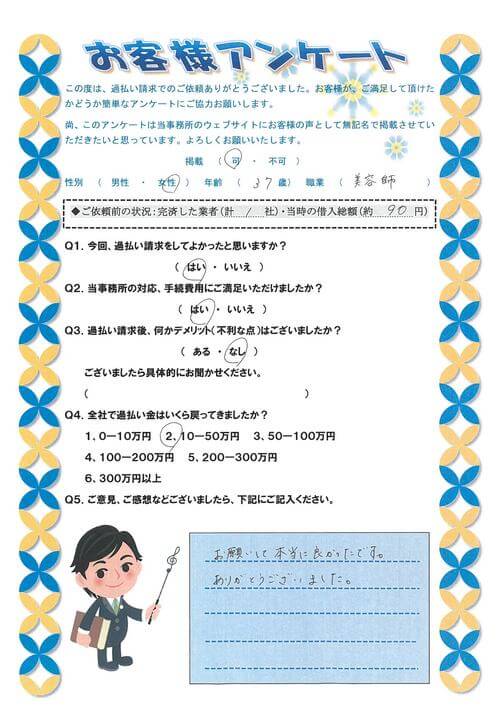 お客様アンケート
この度は、過払い請求でのご依頼ありがとうございました。お客様が、ご満足して頂けた
かどうか簡単なアンケートにご協力お願いします。
尚、このアンケートは当事務所のウェブサイトにお客様の声として無記名で掲載させてい
ただきたいと思っています。よろしくお願いいたします。
掲載 ( 可 ・ 不可 )
性別 ( 男性 ・ 女性 ) 年齢 ( 37 歳) 職業 ( 美容師 )
◆ご依頼前の状況：完済した業者(計 1 社)・当時の借入総額(約 90 円)
Q1. 今回、過払い請求をしてよかったと思いますか？
( はい ・ いいえ )
Q2. 当事務所の対応、手続費用にご満足いただけましたか？
( はい ・ いいえ )
Q3. 過払い請求後、何かデメリット(不利な点)はございましたか？
( ある ・ なし )
ございましたら具体的にお聞かせください。
( )
Q4. 全社で過払い金はいくら戻ってきましたか？
1、0－10万円 2、10－50万円 3、50－100万円
4、100－200万円 5、200－300万円
6、300万円以上
Q5. ご意見、ご感想などございましたら、下記にご記入ください。
お願いして本当に良かったです。
ありがとうございました。